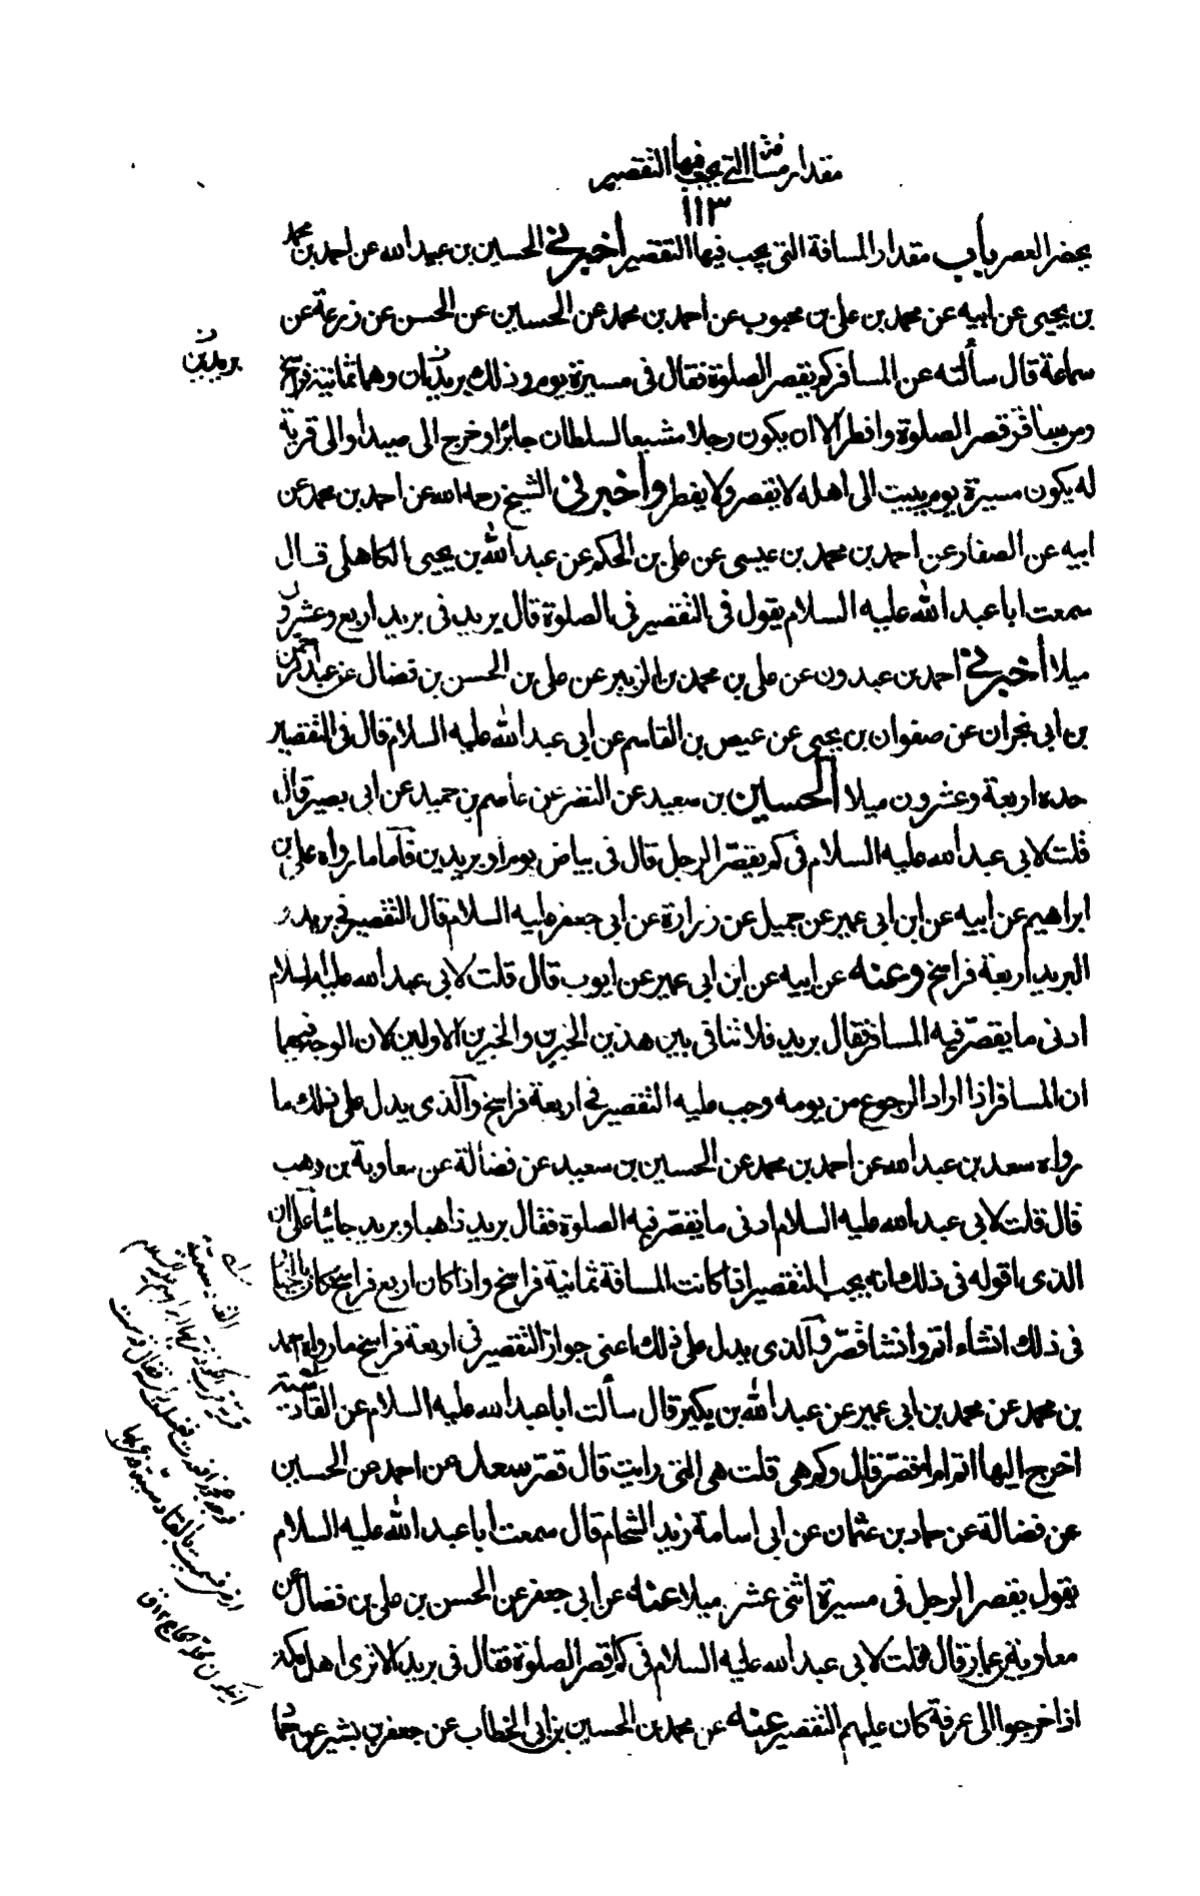 مقدار مسافة التي يجب فيها التقصير
١١٣
يحضر العصر باب مقدار المسافة التي يجب فيها التقصير أخبرني الحسين بن عبيد الله عن احمد بن محمد
بن يحيى عن ابيه عن محمد بن علي بن محبوب عن احمد بن محمد عن الحسين عن الحسن عن زرعة عن
سماعة قال سألته عن المسافر كم يقصر الصلوة فقال في مسيرة يوم وذلك بريدان وهما ثمانية فراسخ
بريدين
ومن سافر قصر الصلوة وافطر الا ان يكون رجلا مشيعا لسلطان جائر او خرج الى صيد او الى قرية
له يكون مسيرة يوم يبيت الى اهله لا يقصر ولا يفطر وأخبرني الشيخ رحمه الله عن احمد بن محمد عن
ابيه عن الصفار عن احمد بن محمد بن عيسى عن علي بن الحكم عن عبد الله بن يحيى الكاهلي قال
سمعت ابا عبد الله عليه السلام يقول في التقصير في الصلوة قال بريد في بريد اربع وعشرون
ميلا أخبرني احمد بن عبدون عن علي بن محمد بن الزبير عن علي بن الحسن بن فضال عن عبد الرحمن
بن ابي نجران عن صفوان بن يحيى عن عيص بن القاسم عن ابي عبد الله عليه السلام قال في التقصير
حده اربعة وعشرون ميلا الحسين بن سعيد عن النضر عن عاصم بن حميد عن ابي بصير قال
قلت لابي عبد الله عليه السلام في كم يقصّر الرجل قال في بياض يوم او بريدين فأما ما رواه علي بن
ابراهيم عن ابيه عن ابن ابي عمير عن جميل عن زرارة عن ابي جعفر عليه السلام قال التقصير في بريد و
البريد اربعة فراسخ وعنه عن ابيه عن ابن ابي عمير عن ايوب قال قلت لابي عبد الله عليه السلام
ادنى ما يقصّر فيه المسافر فقال بريد فلا تنافي بين هذين الخبرين والخبرين الاولين لان الوجه فيهما
ان المسافر اذا اراد الرجوع من يومه وجب عليه التقصير في اربعة فراسخ والذي يدل على ذلك ما
رواه سعد بن عبد الله عن احمد بن محمد عن الحسين بن سعيد عن فضالة عن معاوية بن وهب
قال قلت لابي عبد الله عليه السلام ادنى ما يقصّر فيه الصلوة فقال بريد ذاهبا وبريد جائيا على ان
الذي اقوله في ذلك انه يجب التقصير اذا كانت المسافة ثمانية فراسخ واذا كان اربع فراسخ كان بالخيار
في ذلك ان شاء اتم وان شاء قصّر والذي يدل على ذلك اعني جواز التقصير في اربعة فراسخ ما رواه احمد
بن محمد عن محمد بن ابي عمير عن عبد الله بن بكير قال سألت ابا عبد الله عليه السلام عن القادسية
اخرج اليها اتم ام اقصّر قال وكم هي قلت هي التي رايت قال قصّر سعد عن احمد عن الحسين
عن فضالة عن حماد بن عثمان عن ابي اسامة زيد الشحام قال سمعت ابا عبد الله عليه السلام
يقول يقصر الرجل في مسيرة اثني عشر ميلا عنه عن ابي جعفر عن الحسن بن علي بن فضال عن
معاوية بن عمار قال قلت لابي عبد الله عليه السلام في كم اقصر الصلوة فقال في بريد الا ترى اهل مكة
اذا خرجوا الى عرفة كان عليهم التقصير عنه عن محمد بن الحسين بن ابي الخطاب عن جعفر بن بشير عن حماد